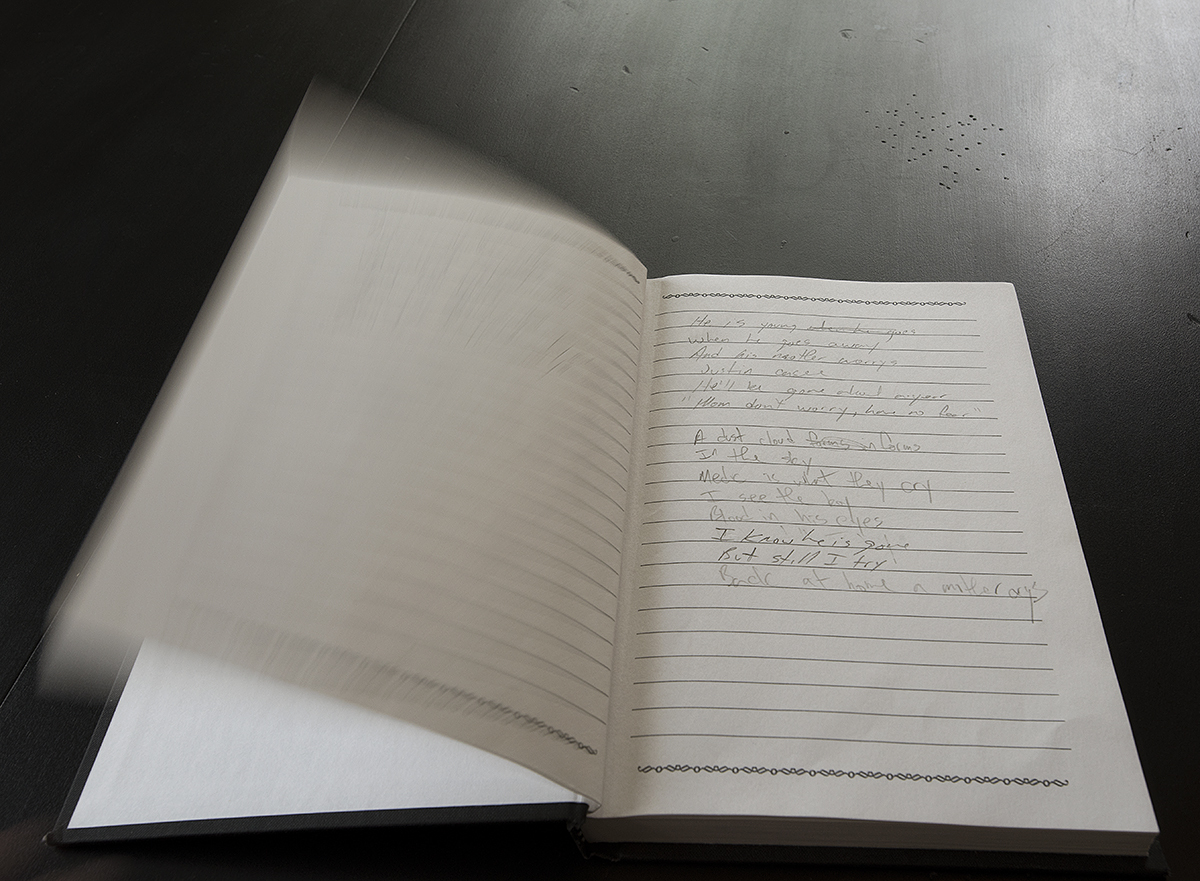 He is young when he goes
when he goes away
And his mother worrys
Justin case
He'll be gone about a year
"Mom don't worry, have no fear"
A dust cloud forms in forms
In the sky
Medic is what they cry
I see the boy
Blood in his eyes
I know he is gone
But still I try
Back at home a mother cry's